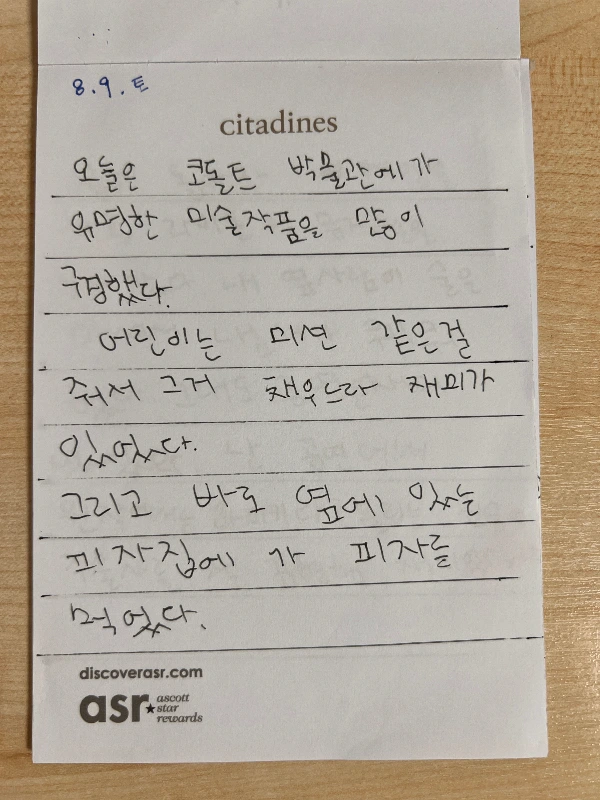 8.9.토
citadines
오늘은 코돌트 박물관에가
유명한 미술작품을 많이
구경했다.
어린이는 미션 같은걸
줘서 그거 채우느라 재미가
있었다.
그리고 바로 옆에 있는
피자집에 가 피자를
먹었다.
discoverasr.com
asr ascott
star
rewards